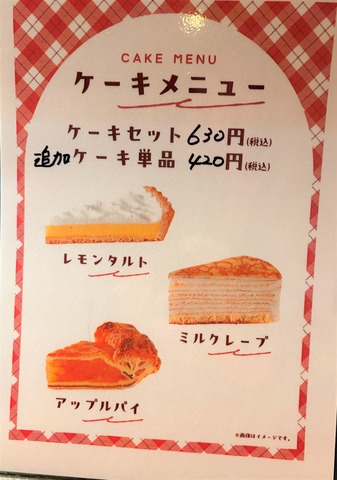 CAKE MENU
ケーキメニュー
ケーキセット 630円(税込)
追加ケーキ単品 420円(税込)
レモンタルト
ミルクレープ
アップルパイ
※画像はイメージです。